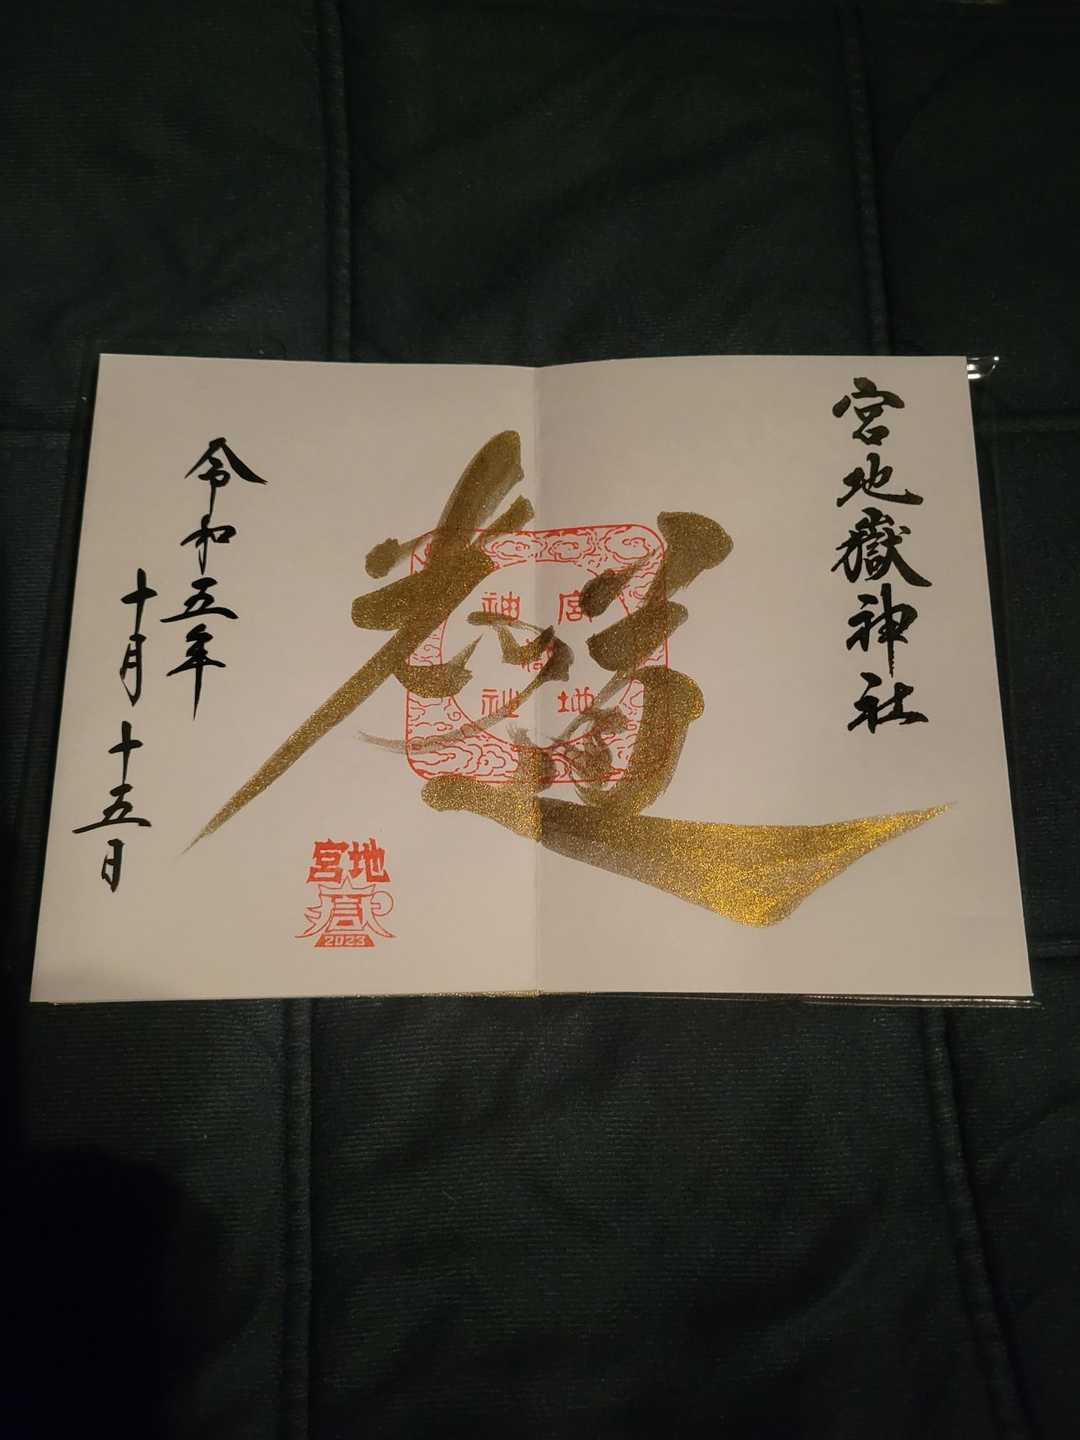 宮地嶽神社
光の道
宮地
嶽
神社
令和五年
十月十五日
宮地
嶽
2023